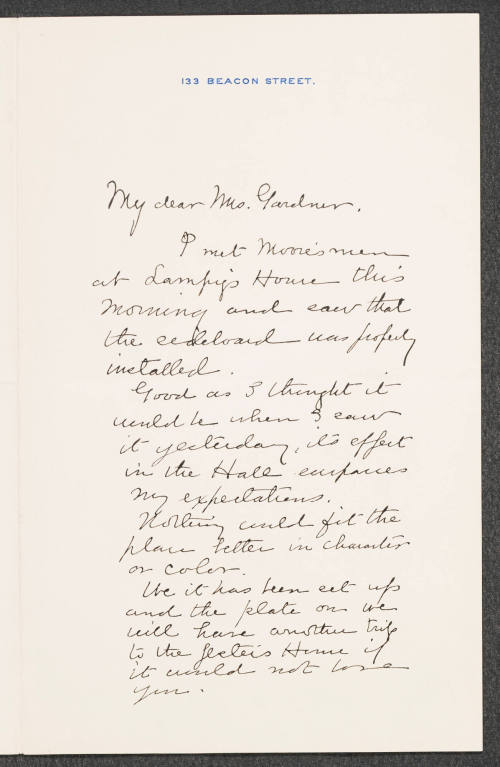 133 BEACON STREET.
My dear Mrs. Gardner.
I met Moore's men
at Lampy's House this
morning and saw that
the sideboard was properly
installed.
Good as I thought it
would be when I saw
it yesterday, its effect
in the Hall surpasses
my expectations.
Nothing could fit the
place better in character
or color.
it has been set up
and the plate on we
will have another trip
to the Jester's Home if
it would not bore
you.